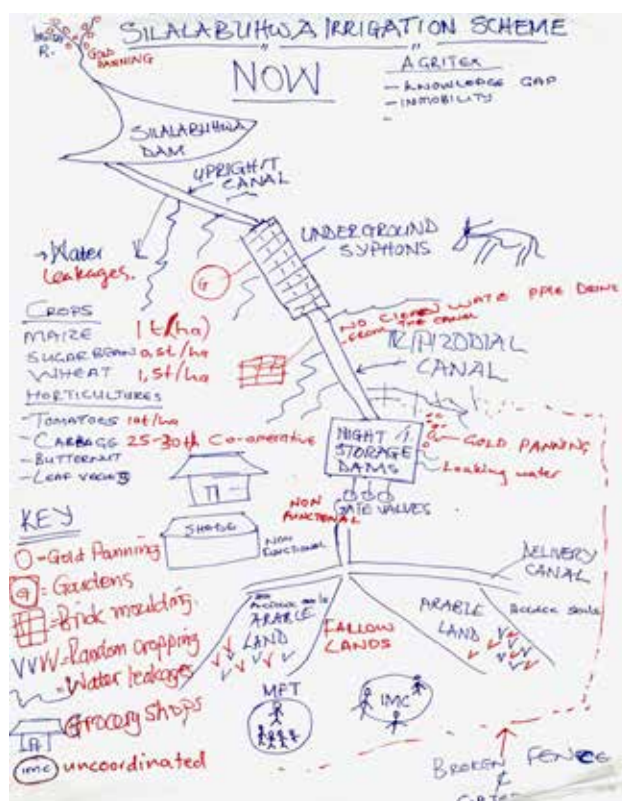 SILALABUHWA IRRIGATION SCHEME
R.
GOLD
PANNING
NOW
AGRITEX
- KNOWLEDGE GAP
- INMOBILITY
SILALABUHWA
DAM
UPRIGHT
CANAL
UNDERGROUND
SYPHONS
→ Water
leakages.
G
NO CLEAN WATE PPLE DRINK
FROM THE CANAL
CANAL
CROPS
MAIZE 1t(ha)
SUGARBEAN 0,5t/ha
WHEAT 1,5t/ha
HORTICULTURES
- TOMATOES 10t/ha
- CABBAGE 25-30th Co-operative
- BUTTERNUT
- LEAF VEGES
NIGHT
STORAGE
DAMS
GOLD PANNING
Leaking water
NON
FUNCTIONAL
GATE VALVES
SHADE
NON
FUNCTIONAL
DELIVERY
CANAL
KEY
O - Gold Panning
G = Gardens
= Brick moulding.
VVVV = Random cropping
= Water leakages
Grocery shops
IMC uncoordinated
ARABLE
LAND
FALLOW
LANDS
ARABLE
LAND
MFT
IMC
BROKEN FENCE
&